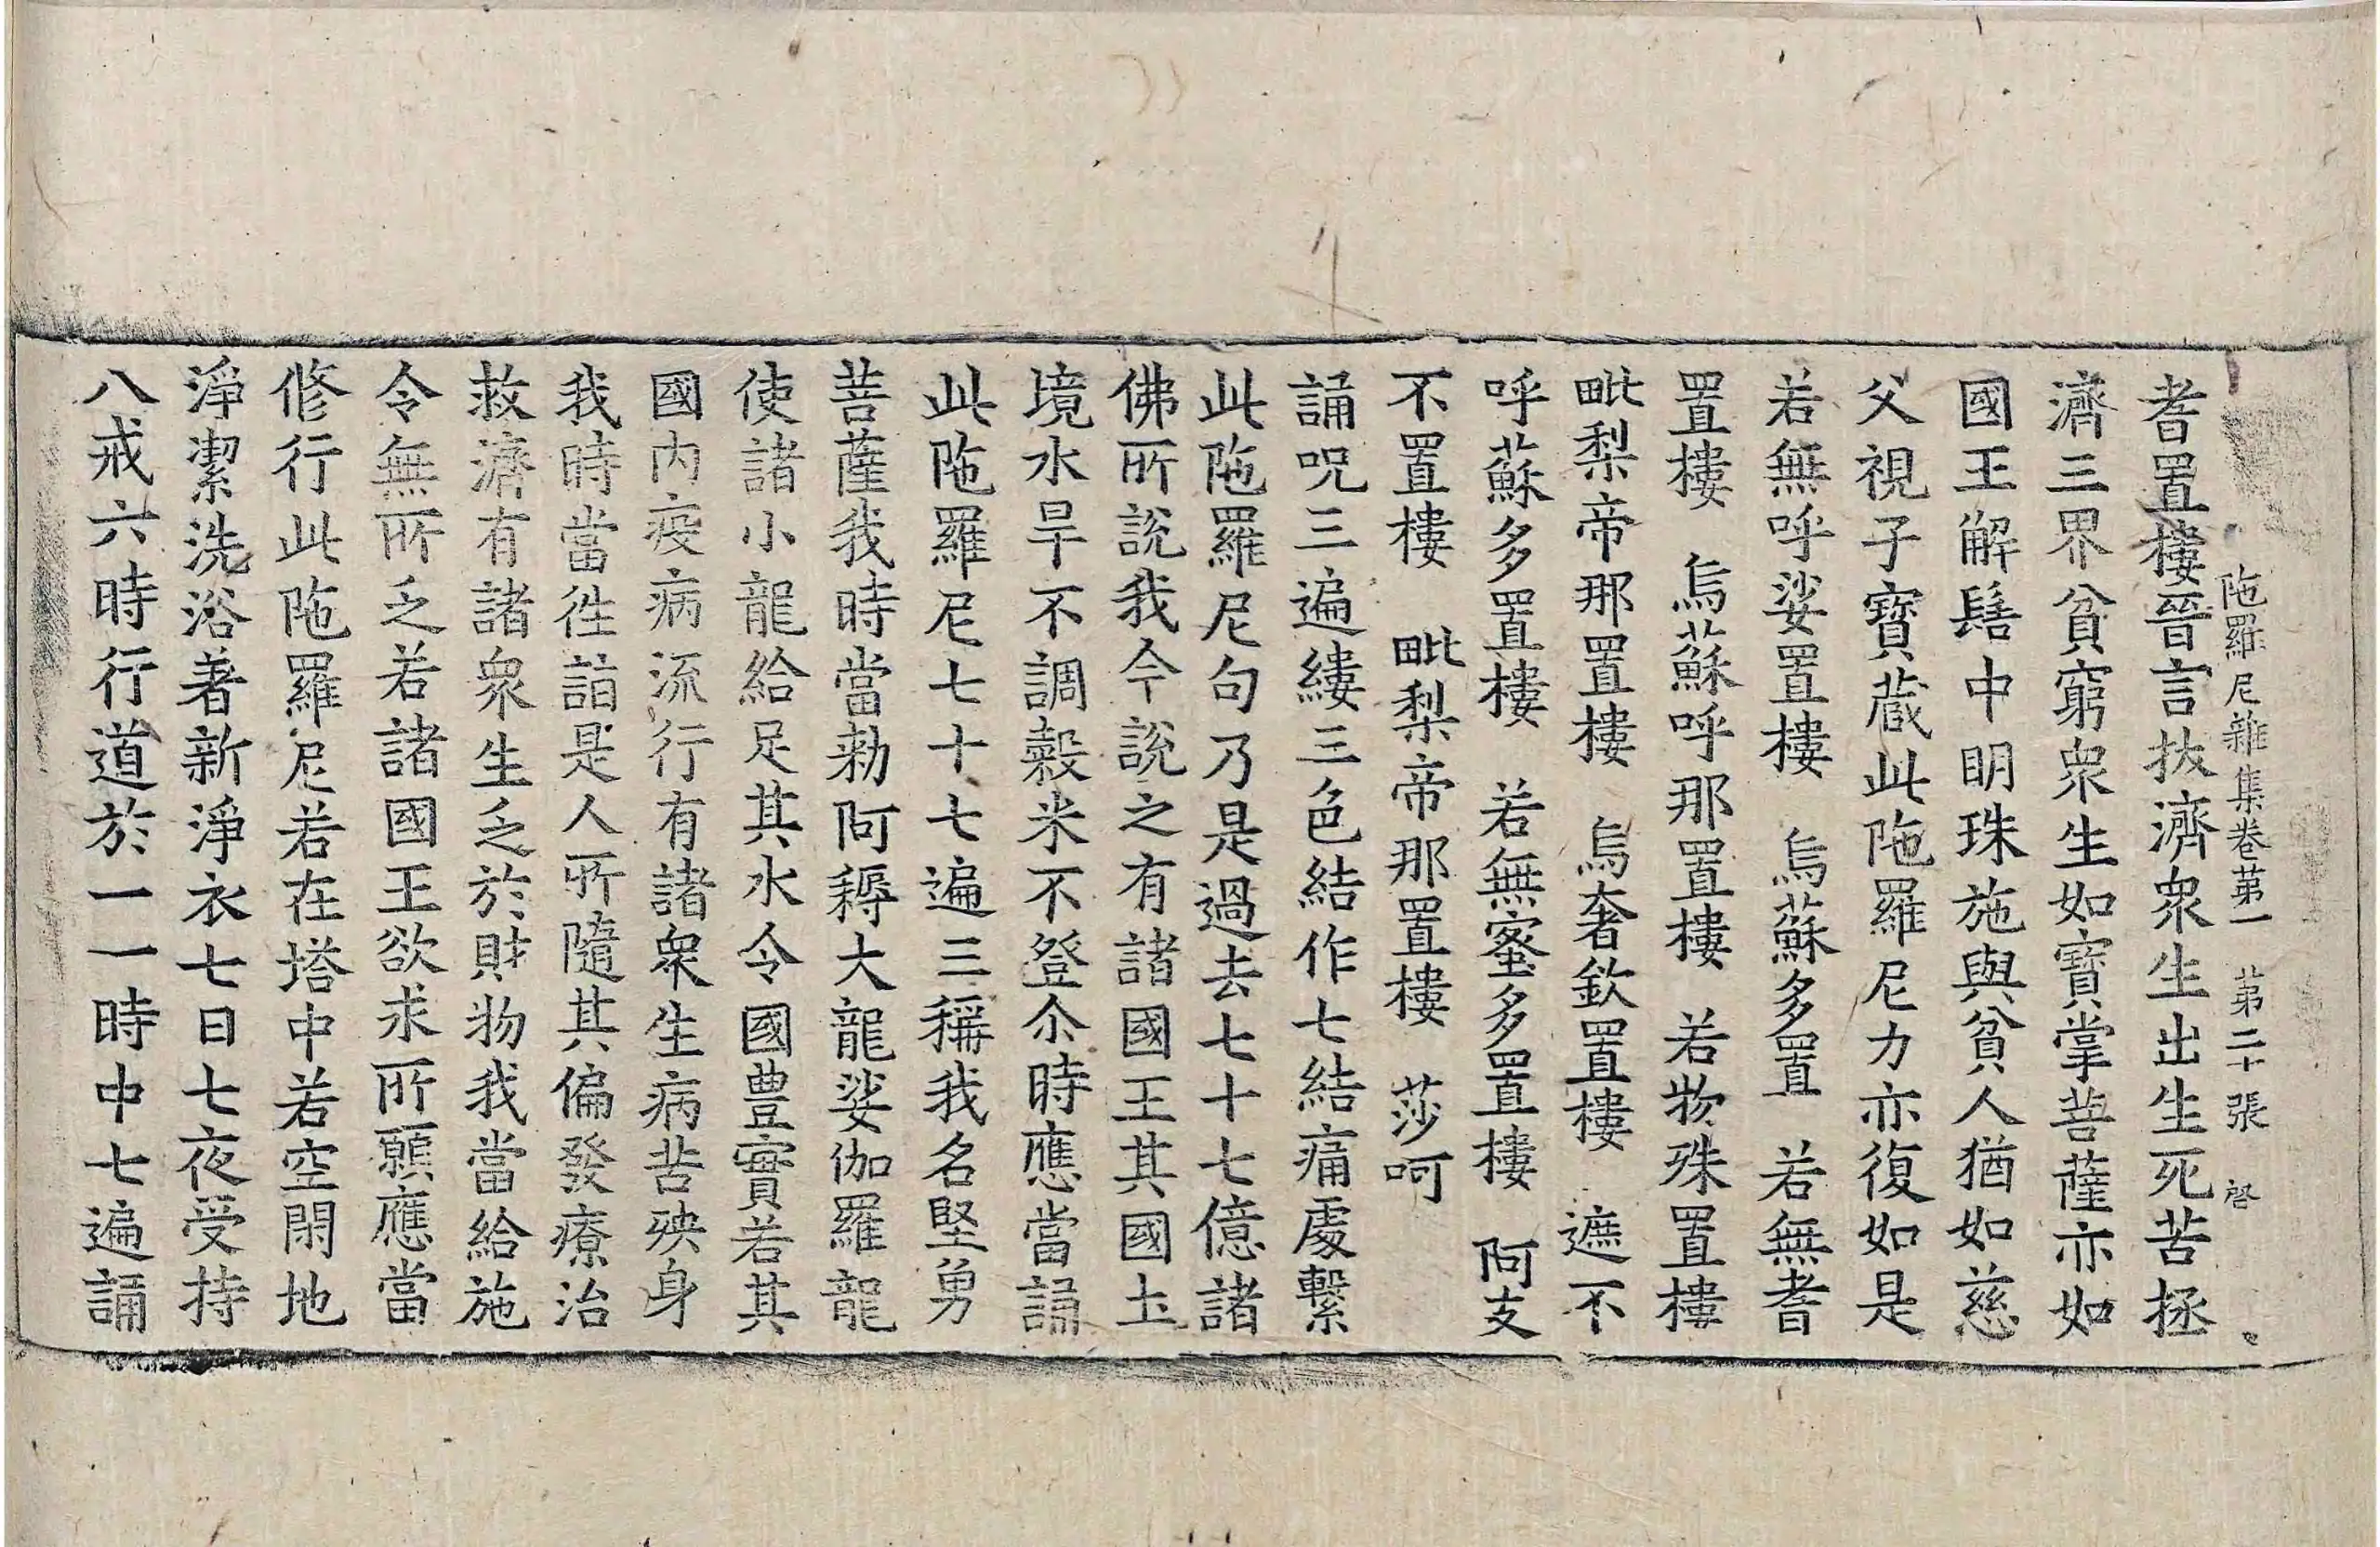 陁羅尼雜集卷苐一 苐二十張 啓
耆置樓晉言扙濟衆生出生死苦拯
濟三界貧窮衆生如寶掌菩薩亦如
國王解髻中明珠施與貧人猶如慈
父視子寶蔵此陁羅尼力亦復如是
若無呼娑置樓 烏蘇多置 若無耆
置樓 烏蘇呼那置樓 若物殊置樓
毗梨帝那置樓 烏奢欽置樓 遮不
呼蘇多置樓 若無蜜多置樓 阿支
不置樓 毗梨帝那置樓 莎呵
誦呪三遍縷三色結作七結痛處繫
此陁羅尼句乃是過去七十七億諸
佛所說我今說之有諸國王其國土
境水旱不調糓米不登尒時應當誦
此陁羅尼七十七遍三稱我名堅勇
菩薩我時當勑阿耨大龍娑伽羅龍
使諸小龍給足其水令國豊實若其
國內疫病流行有諸衆生病苦殃身
我時當徃詣是人所隨其偏發療治
救濟有諸衆生乏於財物我當給施
令無所乏若諸國王欲求所願應當
修行此陁羅尼若在塔中若空閑地
淨潔洗浴著新淨衣七日七夜受持
八戒六時行道於一一時中七遍誦